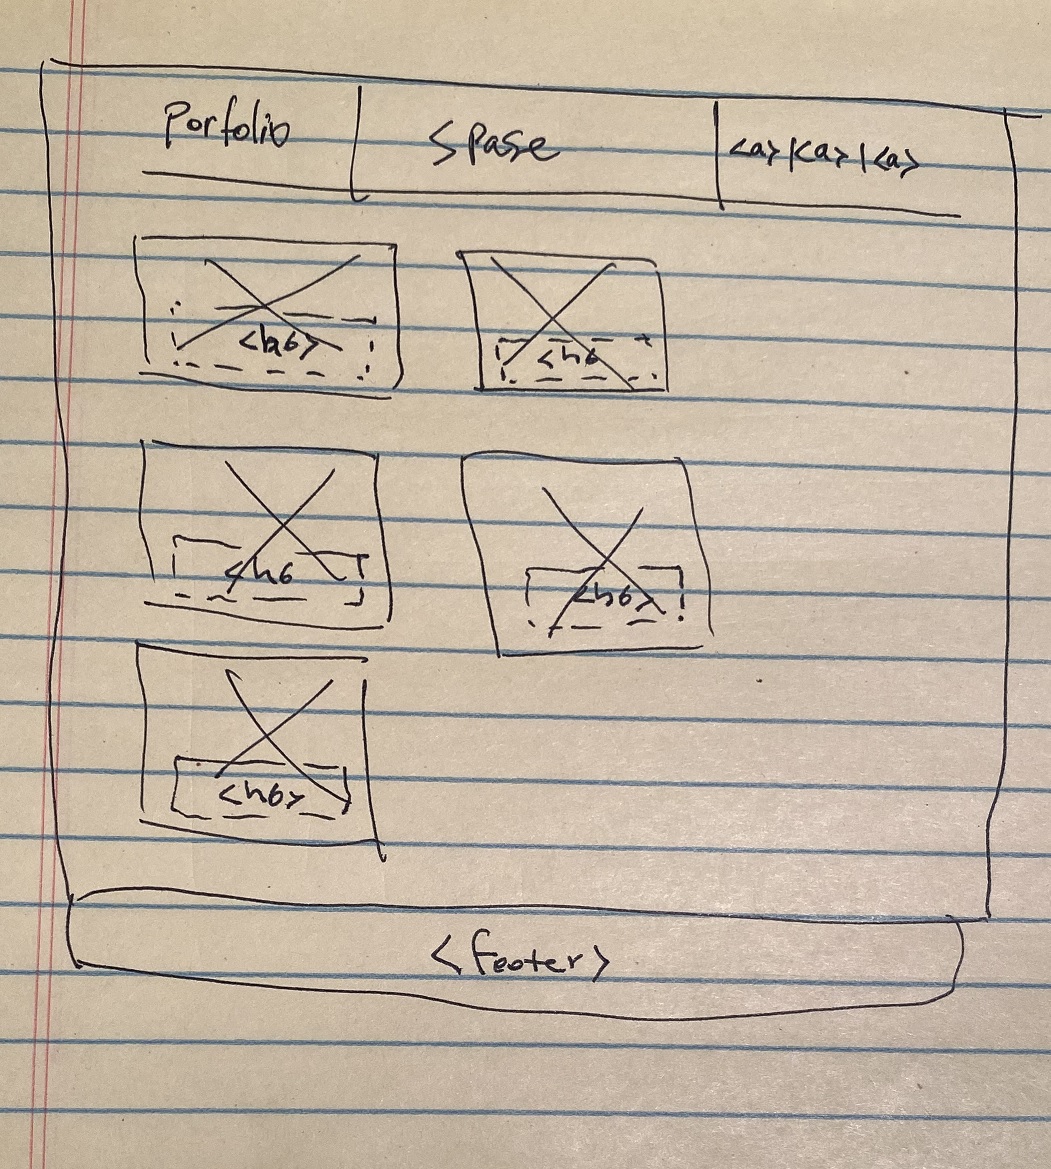 Porfolio
Spase
<a>|<a>|<a>
<h6>
<h6
<h6
<h6>
<h6>
<footer>